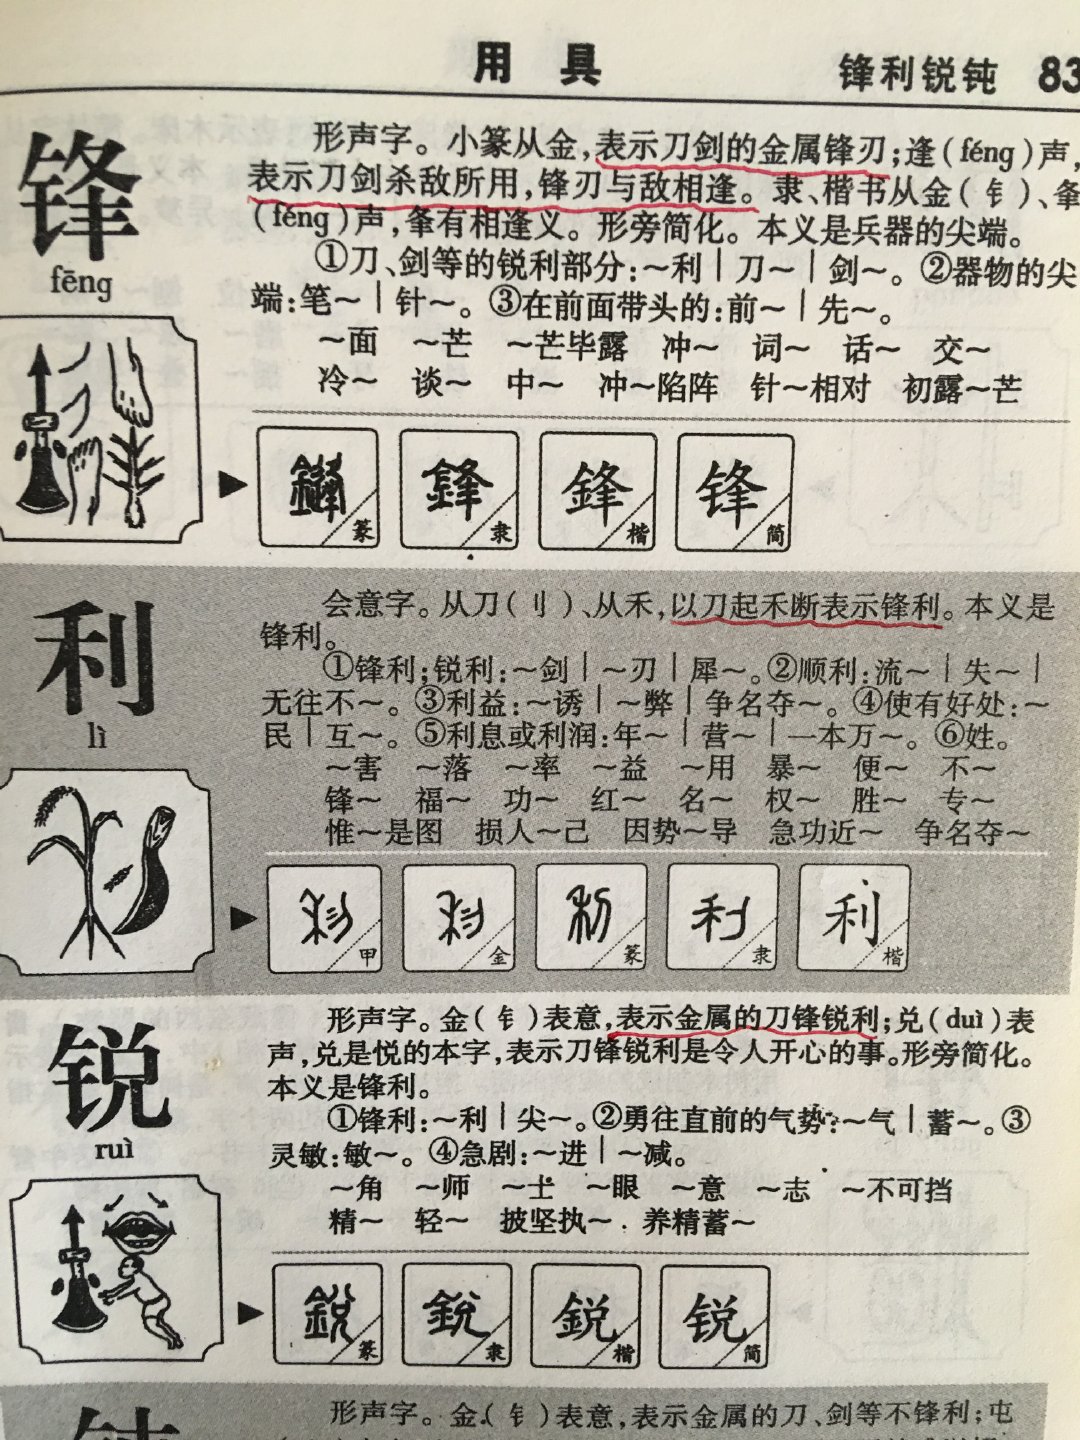 用 具 锋利锐钝 83
锋
fēng
形声字。小篆从金,表示刀剑的金属锋刃;逢(féng)声,
表示刀剑杀敌所用,锋刃与敌相逢。隶、楷书从金(钅)、夆
(féng)声,夆有相逢义。形旁简化。本义是兵器的尖端。
①刀、剑等的锐利部分:~利|刀~|剑~。②器物的尖
端:笔~|针~。③在前面带头的:前~|先~。
~面 ~芒 ~芒毕露 冲~ 词~ 话~ 交~
冷~ 谈~ 中~ 冲~陷阵 针~相对 初露~芒
鋒篆 鋒隶 鋒楷 锋简
利
lì
会意字。从刀(刂)、从禾,以刀起禾断表示锋利。本义是
锋利。
①锋利;锐利:~剑|~刃|犀~。②顺利:流~|失~|
无往不~。③利益:~诱|~弊|争名夺~。④使有好处:~
民|互~。⑤利息或利润:年~|营~|一本万~。⑥姓。
~害 ~落 ~率 ~益 ~用 暴~ 便~ 不~
锋~ 福~ 功~ 红~ 名~ 权~ 胜~ 专~
惟~是图 损人~己 因势~导 急功近~ 争名夺~
利甲 利金 利篆 利隶 利楷
锐
ruì
形声字。金(钅)表意,表示金属的刀锋锐利;兑(duì)表
声,兑是悦的本字,表示刀锋锐利是令人开心的事。形旁简化。
本义是锋利。
①锋利:~利|尖~。②勇往直前的气势:~气|蓄~。③
灵敏:敏~。④急剧:~进|~减。
~角 ~师 ~士 ~眼 ~意 ~志 ~不可挡
精~ 轻~ 披坚执~ 养精蓄~
鋭篆 鋭隶 鋭楷 锐简
形声字。金(钅)表意,表示金属的刀、剑等不锋利;屯